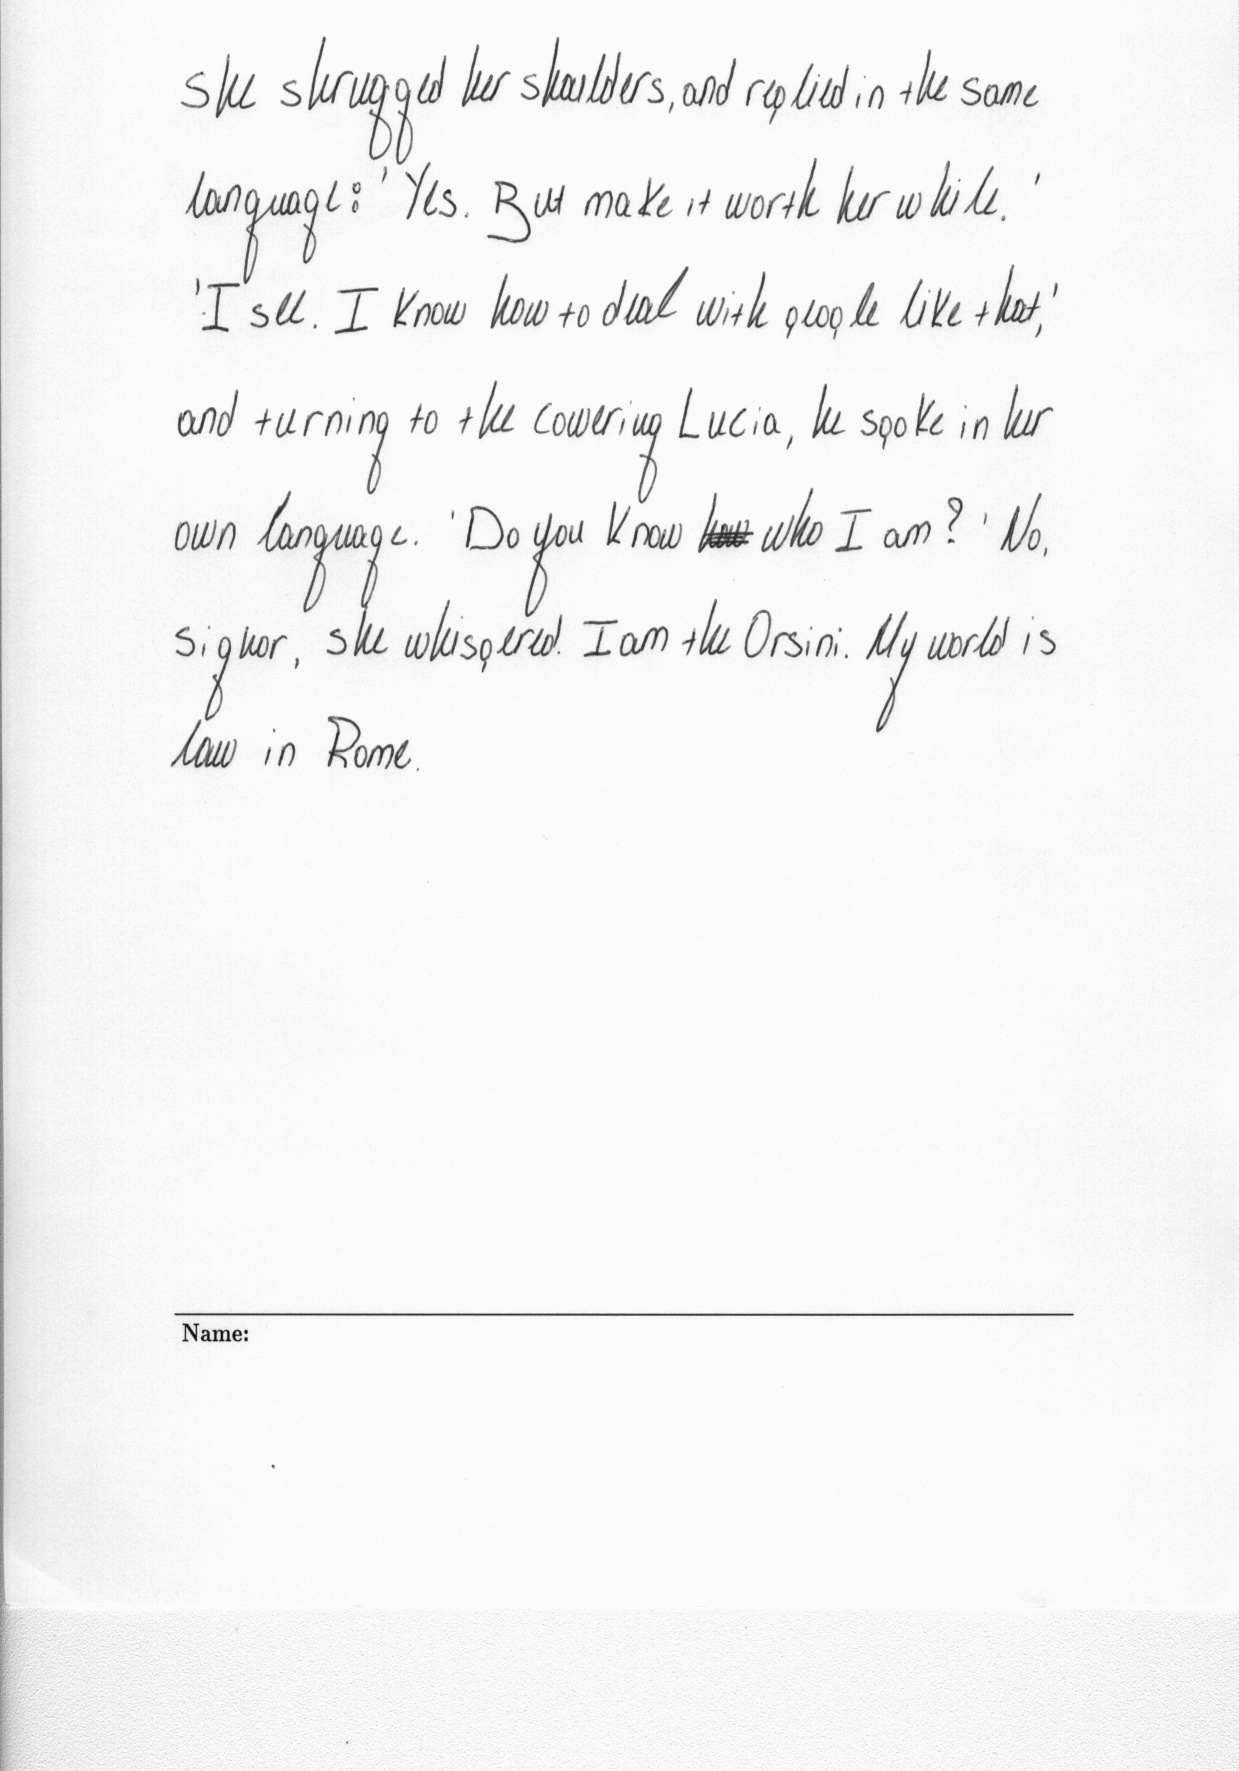 she shrugged her shoulders, and replied in the same
language: 'Yes. But make it worth her while.'
'I see. I know how to deal with people like that,'
and turning to the cowering Lucia, he spoke in her
own language. 'Do you know who I am?' No,
signor, she whispered. I am the Orsini. My world is
law in Rome.
Name: